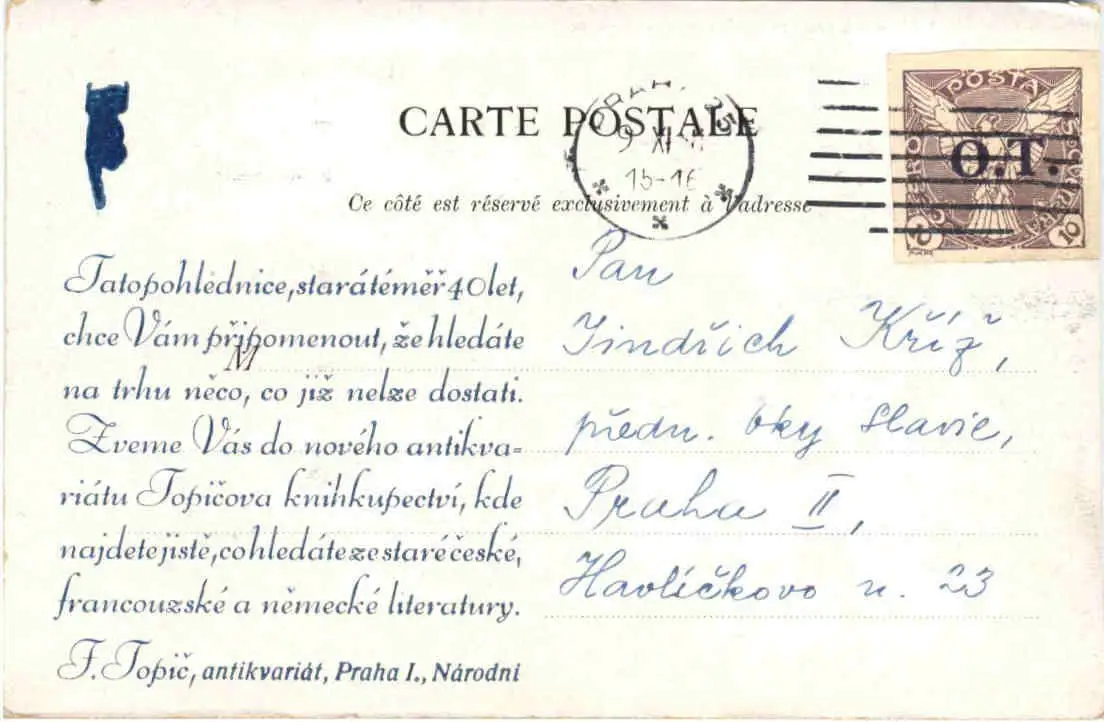 CARTE POSTALE
Ce côté est réservé exclusivement à l'adresse
9 XI
15-16
POSTA
ČESKOSLOVENSKÁ
O.T.
10 10
Tato pohlednice, stará téměř 40 let,
chce Vám připomenout, že hledáte
M
na trhu něco, co již nelze dostati.
Zveme Vás do nového antikva-
riátu Topičova knihkupectví, kde
najdete jistě, co hledáte ze staré české,
francouzské a německé literatury.
F. Topič, antikvariát, Praha I., Národní
Pan
Jindřich Kříž,
předn. bky Slavie,
Praha II,
Havlíčkovo n. 23